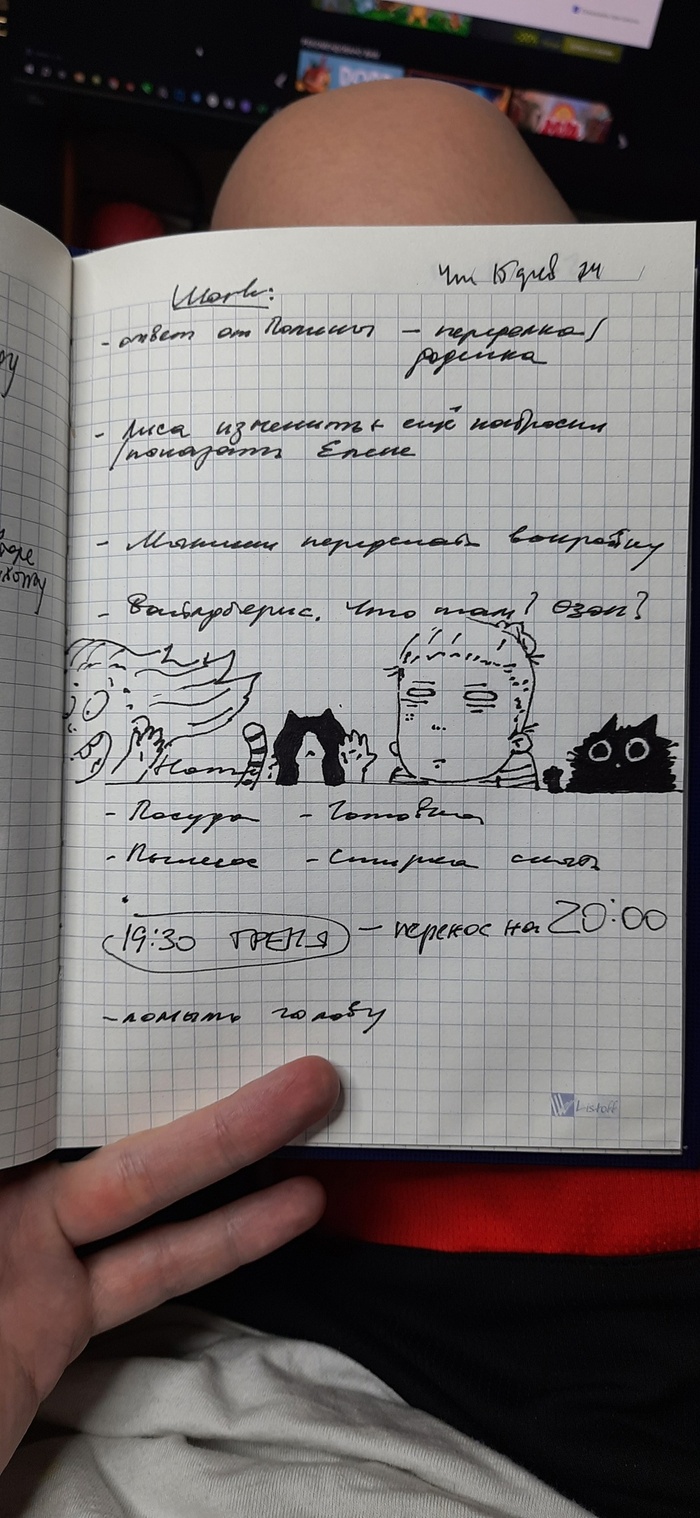 Work:
- ответ от Полины — переделка/
роденка
- Лиса изменить + ещё наброски
/показать Елене
- переделать
- Вайлдберис. Что там? Озон?
Home
- Посуда - Готовка
- Пылесос - Стирка снять
19:30 ТРЕНЯ — перенос на 20:00
- помыть голову
Listoff